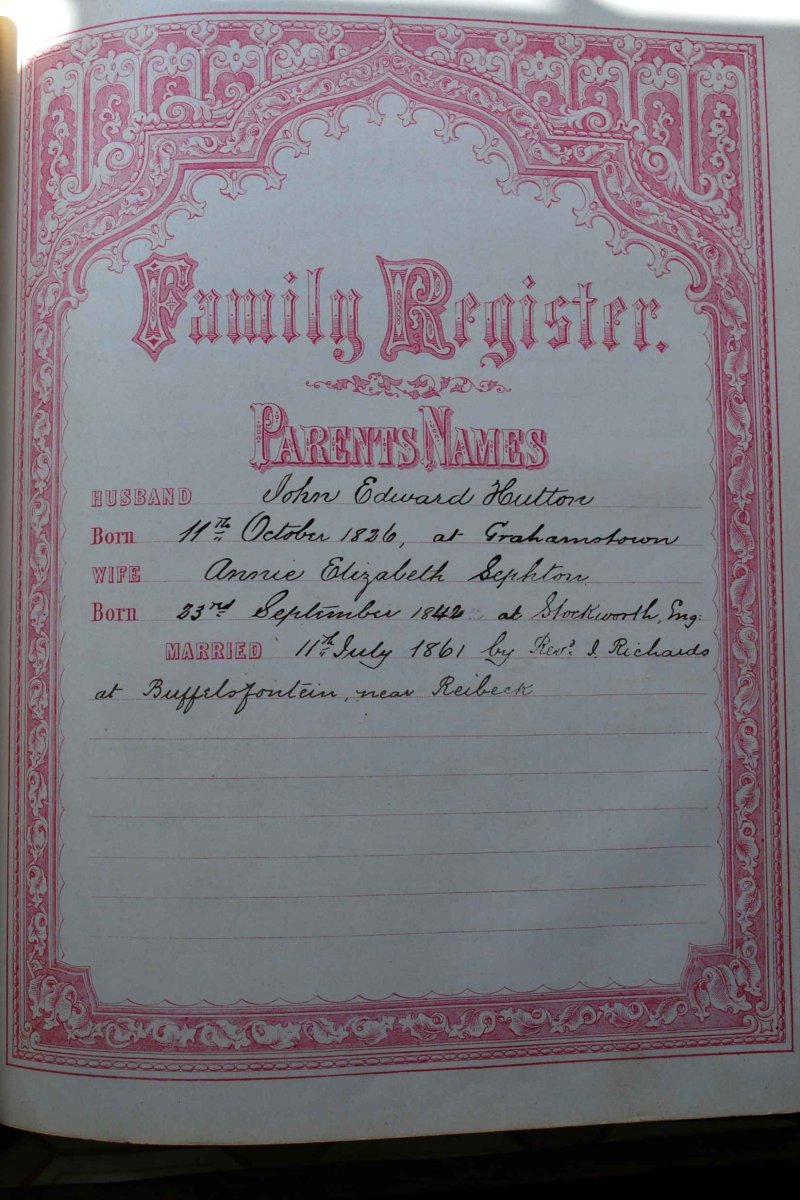 Family Register.
PARENTS NAMES
HUSBAND John Edward Hutton
Born 11th October 1826, at Grahamstown
WIFE Annie Elizabeth Sephton
Born 23rd September 1842 at Stockworth, Eng:
MARRIED 11th July 1861 by Revd. I. Richards
at Buffelsfontein, near Reibeck